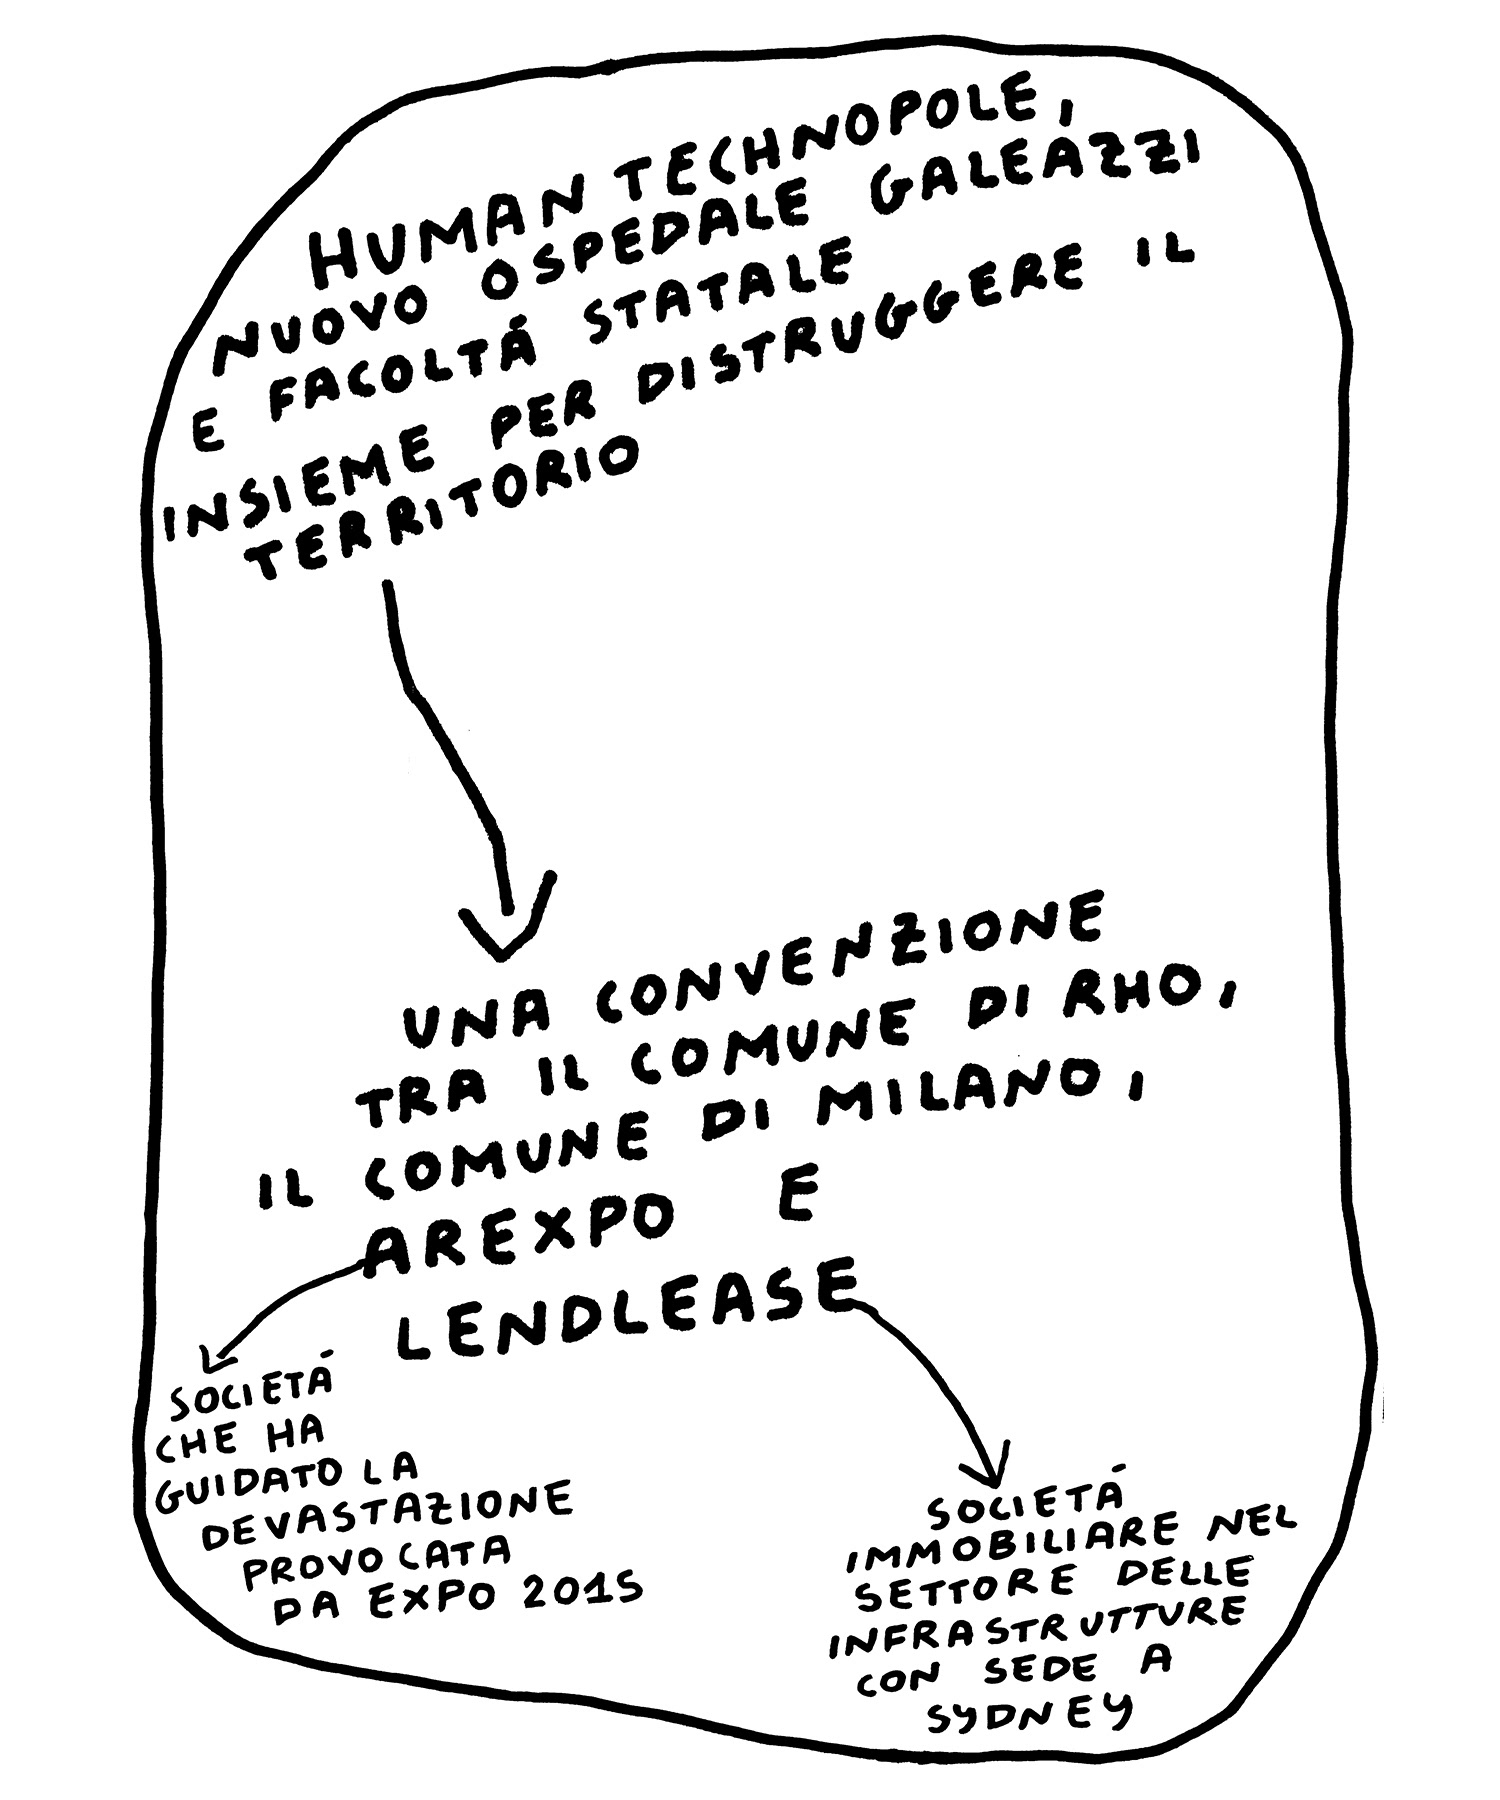 HUMAN TECHNOPOLE,
NUOVO OSPEDALE GALEAZZI
E FACOLTÁ STATALE
INSIEME PER DISTRUGGERE IL
TERRITORIO
UNA CONVENZIONE
TRA IL COMUNE DI RHO,
IL COMUNE DI MILANO,
AREXPO E
LENDLEASE
SOCIETÁ
CHE HA
GUIDATO LA
DEVASTAZIONE
PROVOCATA
DA EXPO 2015
SOCIETÁ
IMMOBILIARE NEL
SETTORE DELLE
INFRASTRUTTURE
CON SEDE A
SYDNEY